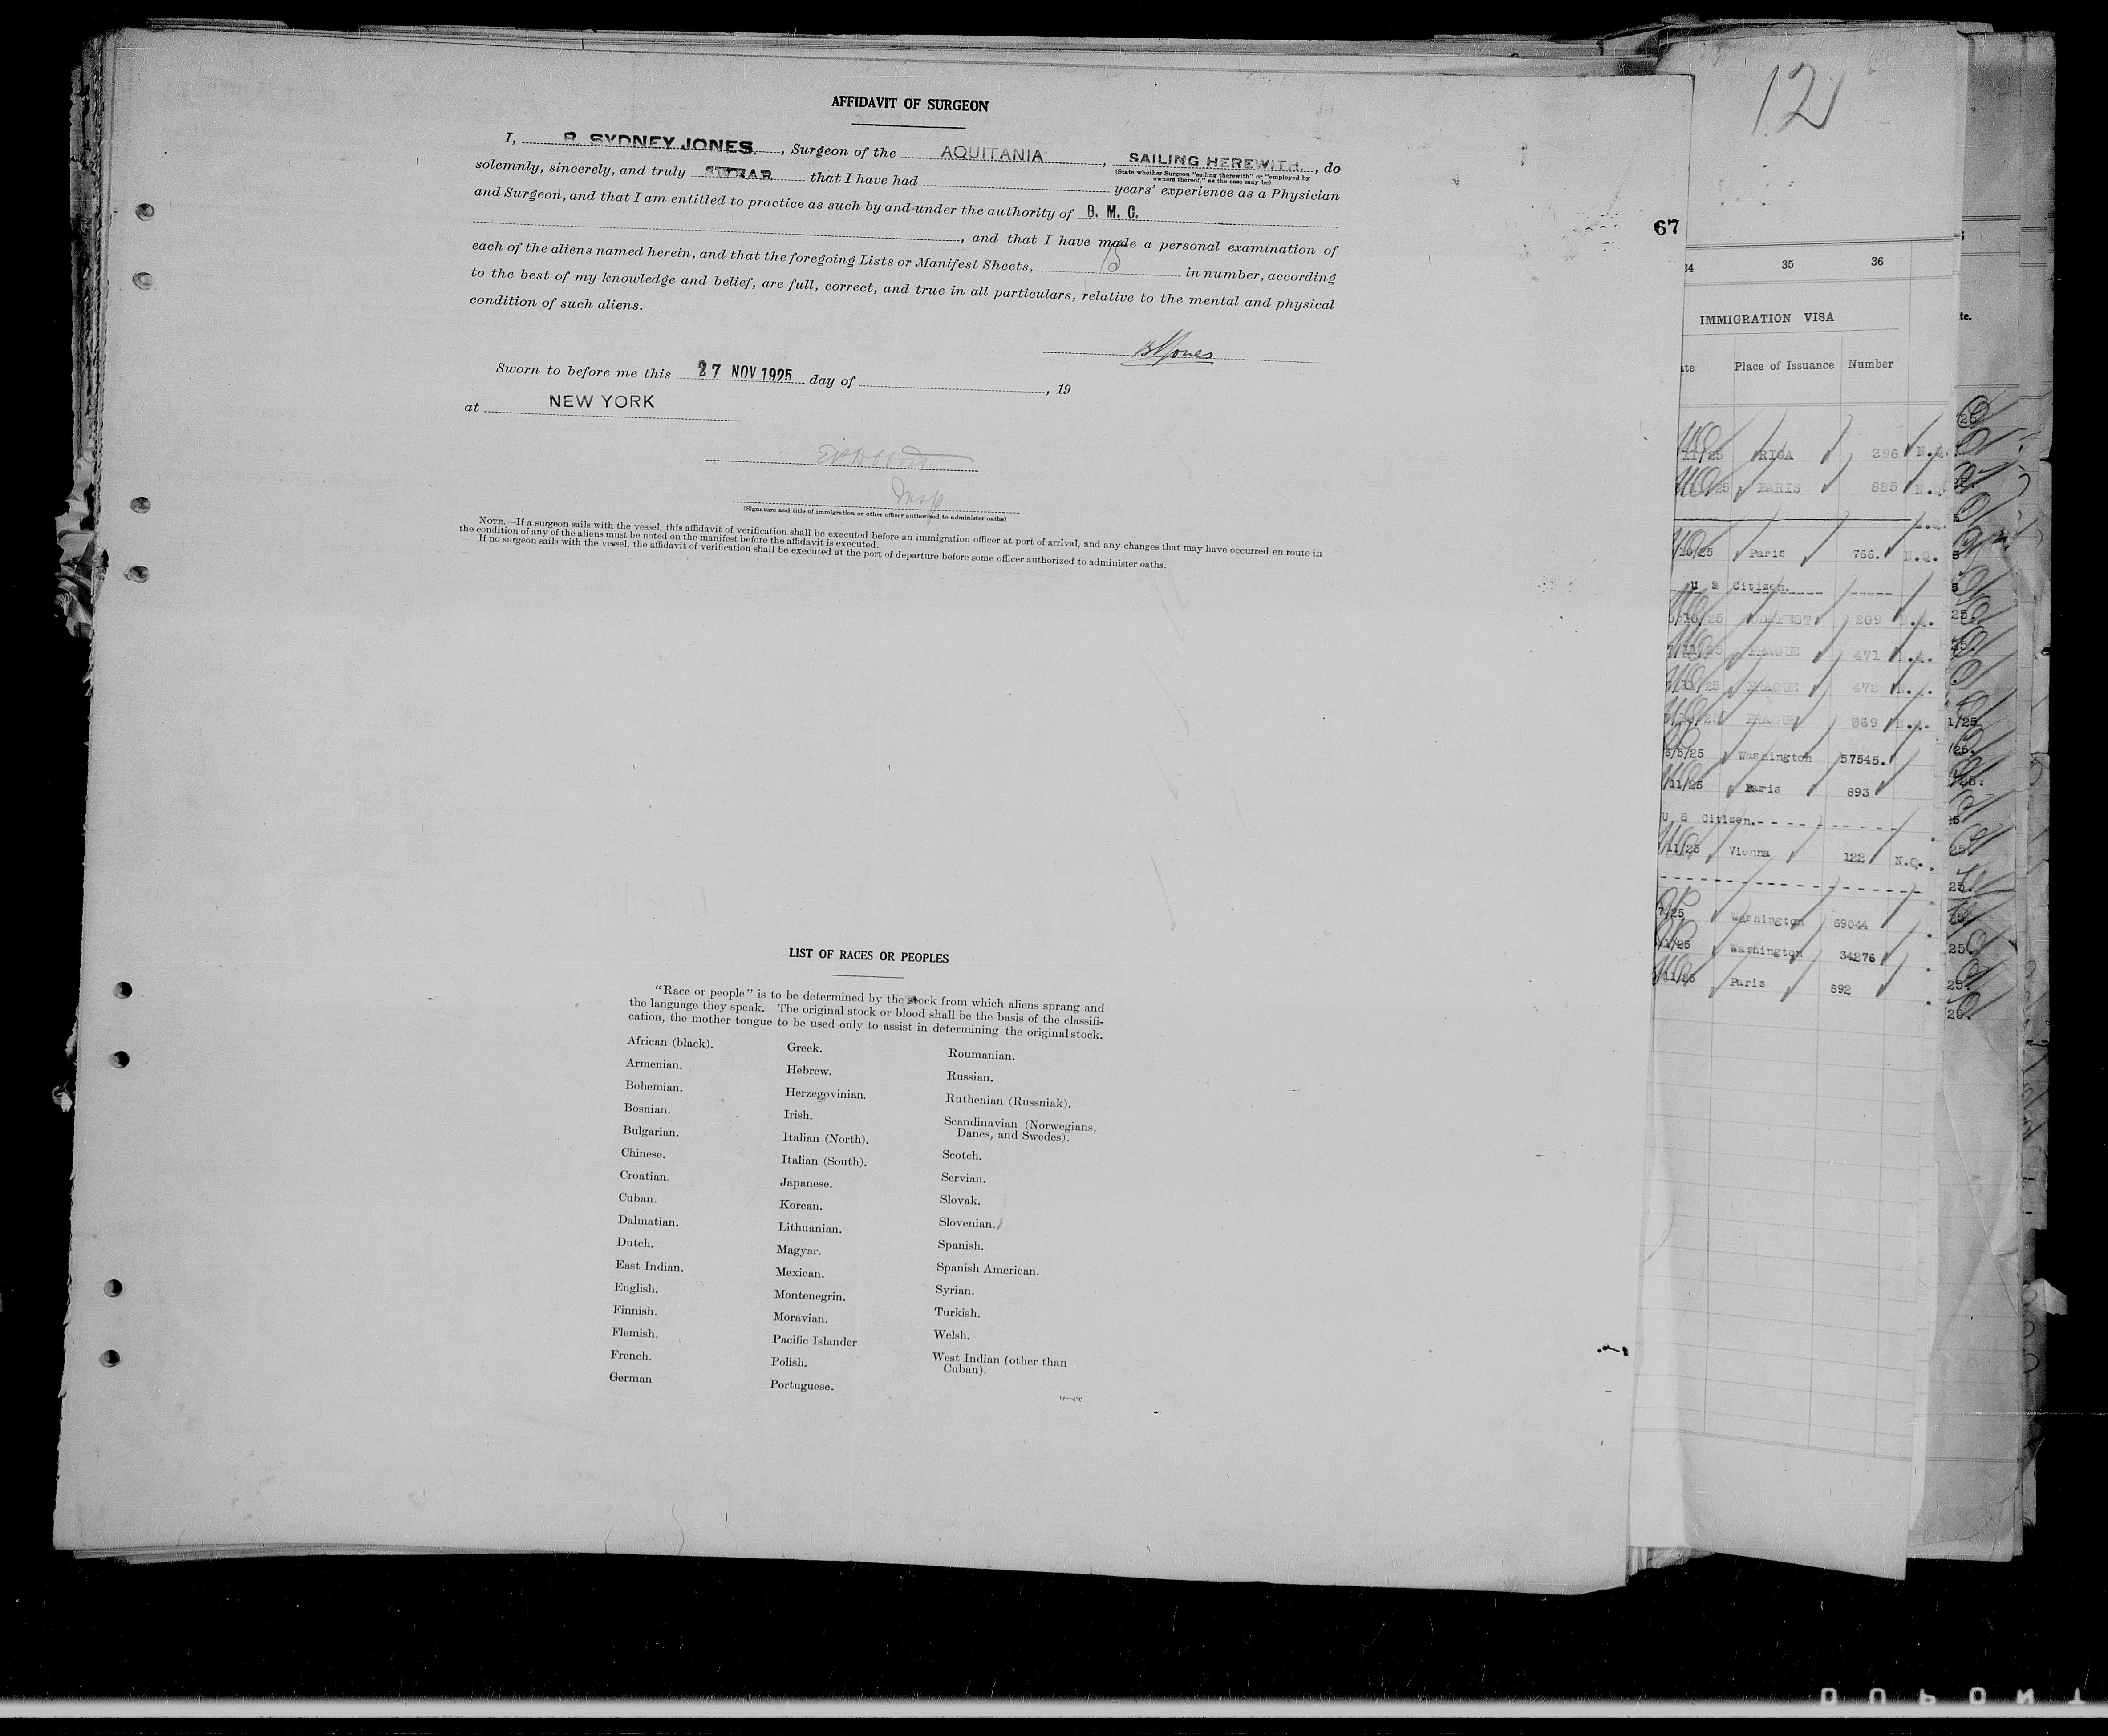 AFFIDAVIT OF SURGEON
I, B. SYDNEY JONES, Surgeon of the AQUITANIA, SAILING HEREWITH., do
(State whether Surgeon "sailing therewith" or "employed by
owners thereof," as the case may be)
solemnly, sincerely, and truly SWEAR that I have had years' experience as a Physician
and Surgeon, and that I am entitled to practice as such by and under the authority of B. M. C.
, and that I have made a personal examination of
each of the aliens named herein, and that the foregoing Lists or Manifest Sheets, in number, according
to the best of my knowledge and belief, are full, correct, and true in all particulars, relative to the mental and physical
condition of such aliens.
BSJones
Sworn to before me this 27 NOV 1925 day of , 19
at NEW YORK
Insp
(Signature and title of immigration or other officer authorized to administer oaths)
NOTE.—If a surgeon sails with the vessel, this affidavit of verification shall be executed before an immigration officer at port of arrival, and any changes that may have occurred en route in
the condition of any of the aliens must be noted on the manifest before the affidavit is executed.
If no surgeon sails with the vessel, the affidavit of verification shall be executed at the port of departure before some officer authorized to administer oaths.
LIST OF RACES OR PEOPLES
"Race or people" is to be determined by the stock from which aliens sprang and
the language they speak. The original stock or blood shall be the basis of the classifi-
cation, the mother tongue to be used only to assist in determining the original stock.
African (black).
Armenian.
Bohemian.
Bosnian.
Bulgarian.
Chinese.
Croatian.
Cuban.
Dalmatian.
Dutch.
East Indian.
English.
Finnish.
Flemish.
French.
German
Greek.
Hebrew.
Herzegovinian.
Irish.
Italian (North).
Italian (South).
Japanese.
Korean.
Lithuanian.
Magyar.
Mexican.
Montenegrin.
Moravian.
Pacific Islander
Polish.
Portuguese.
Roumanian.
Russian.
Ruthenian (Russniak).
Scandinavian (Norwegians,
Danes, and Swedes).
Scotch.
Servian.
Slovak.
Slovenian.
Spanish.
Spanish American.
Syrian.
Turkish.
Welsh.
West Indian (other than
Cuban).
67
12
34 35 36
IMMIGRATION VISA
Place of Issuance Number
11/25 RIGA 396 N.Q.
25 PARIS 885 N.Q.
25 Paris 766. N.Q.
U S Citizen.
/10/25 BUDAPEST 209
PRAGUE 471
PRAGUE 472
PRAGUE 369
/5/25 Washington 57545.
/11/25 Paris 893
U S Citizen.
/11/25 Vienna 122 N.Q.
7/25 Washington 69044
1/25 Washington 34276
/11/25 Paris 892